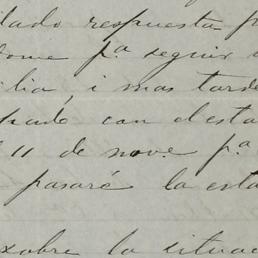 dado respuesta p
dome pª seguir
lia, i mas tarde
prado con el esta
11 de nove. pª
pasaré la esta
sobre la situac